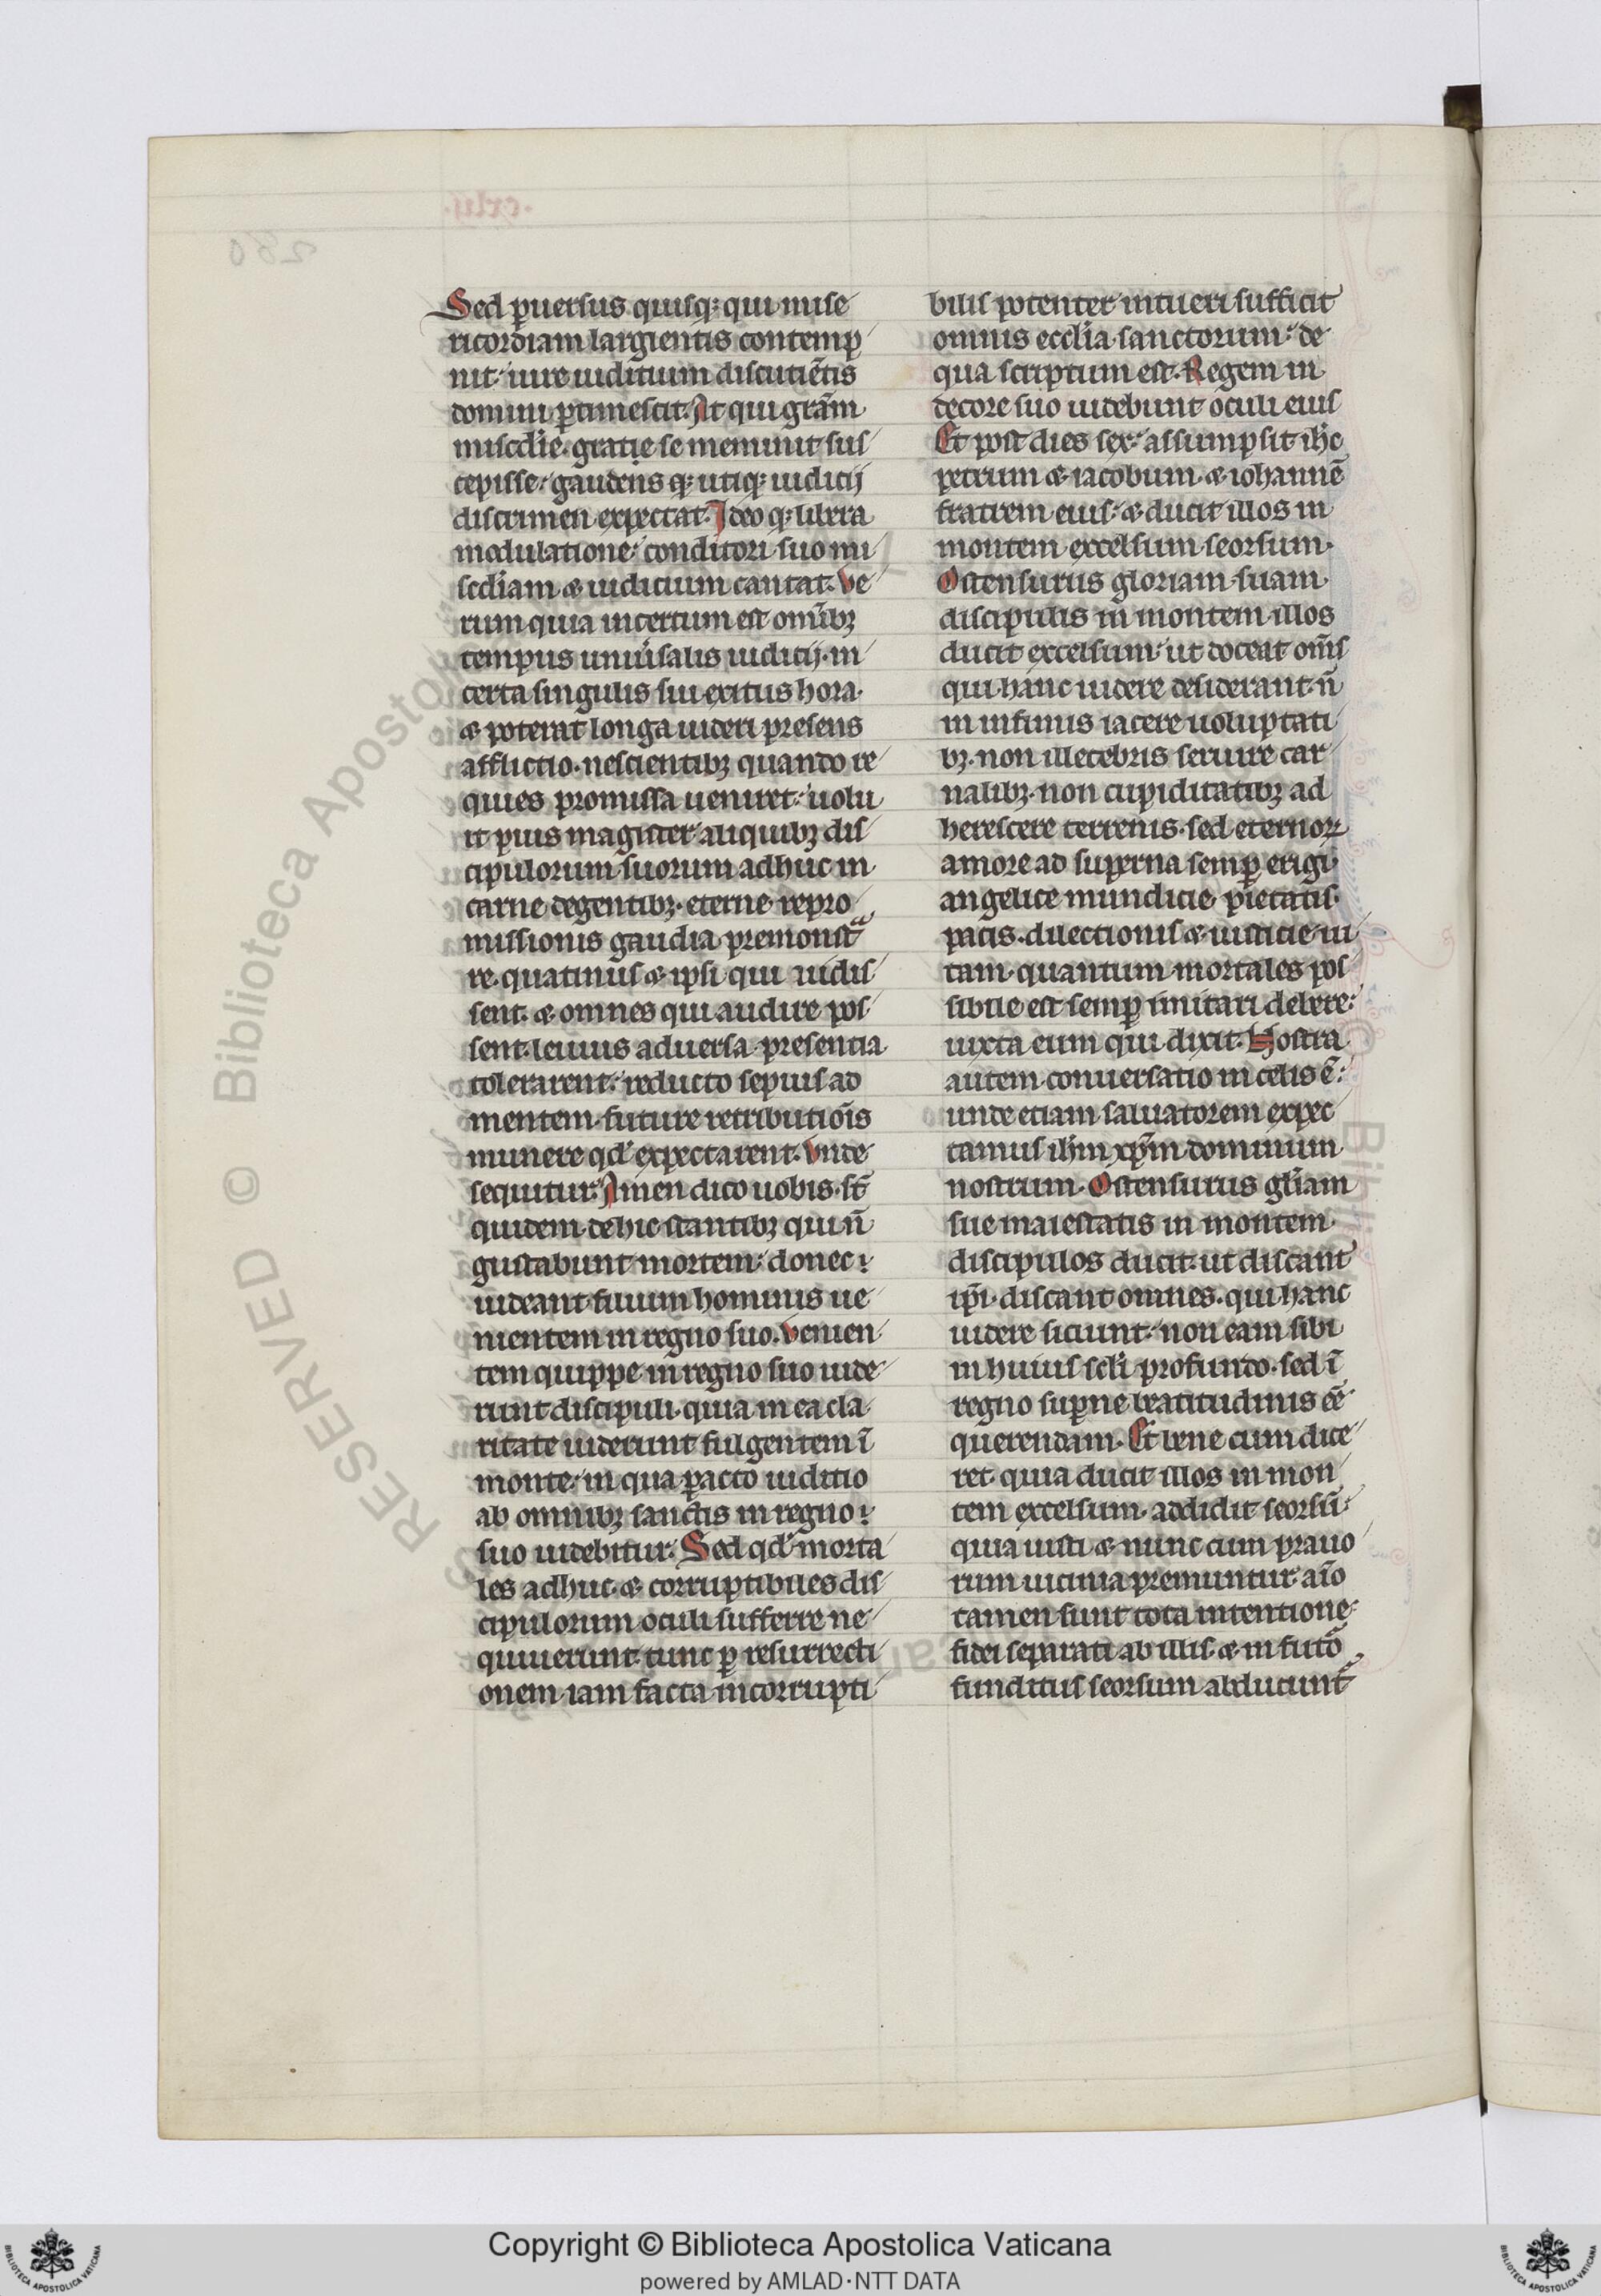 Sed ꝑuersus quisq; qui mise
ricordiam largientis contemp
nit: iure iuditium discutiẽtis
domini ꝑtimescit. At qui grãm
miscdie. gratie se meminit sus
cepisse: gaudens q; utiq; iudicij
discrimen expectat. Ideo q; libera
modulatione: conditori suo mi
scdiam & iudicium cantat. Ve
rum quia incertum est omĩbꝫ
tempus uniũsalis iudicij. in
certa singulis sui exitus hora.
& poterat longa uideri presens
afflictio. nescientibꝫ quando re
quies promissa ueniret: uolu
it pius magister aliquibꝫ dis
cipulorum suorum adhuc in
carne degentibꝫ. eterne repro
missionis gaudia premonstᵃ
re. quatinus & ipsi qui uidis
sent. & omnes qui audire pos
sent. leuius aduersa presentia
tolerarent: reducto sepius ad
mentem. future retributiõis
munere qd' expectarent. Vnde
sequitur: Amen dico uobis. st̃
quidem de hic stantibꝫ qui ñ
gustabunt mortem: donec
uideant filium hominis ue
nientem in regno suo. Venien
tem quippe in regno suo uide
runt discipuli. quia in ea cla
ritate uiderunt fulgentem ĩ
monte: in qua ꝑacto iuditio
ab omnibꝫ sanctis in regno
suo uidebitur. Sed qd' morta
les adhuc. & corruptibiles dis
cipulorum oculi sufferre ne
quiuerunt. tunc ꝑ resurrecti
onem iam facta incorrupti
bilis potenter intueri sufficit
omnis ecclia sanctorum: de
qua scriptum est. Regem in
decore suo uidebunt oculi eius
Et post dies sex: assumpsit ihc
petrum & iacobum. & iohannẽ
fratrem eius: & ducit illos in
montem excelsum seorsum.
Ostensurus gloriam suam
discipulis in montem illos
ducit excelsum: ut doceat oms̃
qui hanc uidere desiderant. ñ
in infimis iacere uoluptati
bꝫ. non illecebris seruire car
nalibꝫ. non cupiditatibꝫ ad
herescere terrenis. sed eternoꝝ
amore ad superna semꝑ erigi
angelice mundicie. pietatis.
pacis. dilectionis & iusticie ui
tam quantum mortales pos
sibile est semꝑ imitari debere:
iuxta eum qui dixit. Nostra
autem conuersatio in celis ẽ:
unde etiam saluatorem expec
tamus ihm xpm dominum
nostrum. Ostensurus gliam
sue maiestatis in montem
discipulos ducit: ut discant
ipi. discant omnes. qui hanc
uidere siciunt: non eam sibi
in huius scli profundo. sed ĩ
regno suꝑne beatitudinis eẽ
querendam. Et bene cum dice
ret quia ducit illos in mon
tem excelsum. addidit seorsũ:
quia iusti & nunc cum prauo
rum uicinia premuntur. aĩo
tamen sunt tota intentione
fidei separati ab illis. & in futõ
funditus seorsum abducunt᷑
Copyright © Biblioteca Apostolica Vaticana
powered by AMLAD·NTT DATA
RESERVED © Biblioteca Aposto